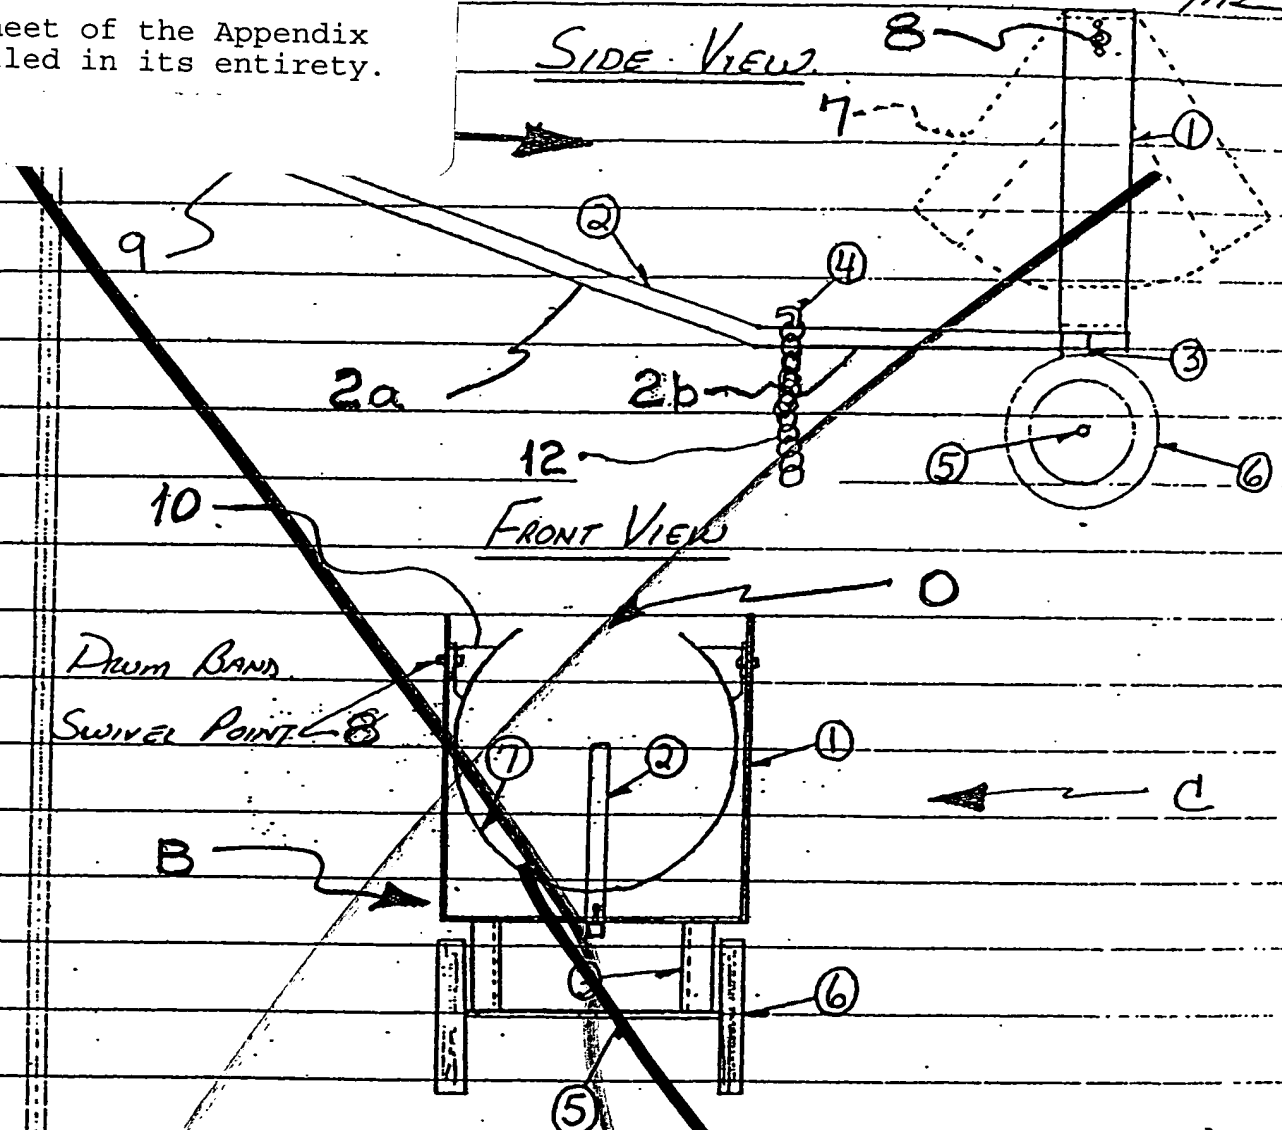 neet of the Appendix
lled in its entirety.
SIDE VIEW
8
7
1
9
2
4
2a
2b
3
12
5
6
10
FRONT VIEW
D
DRUM BAND
SWIVEL POINT 8
7
2
1
C
B
6
5